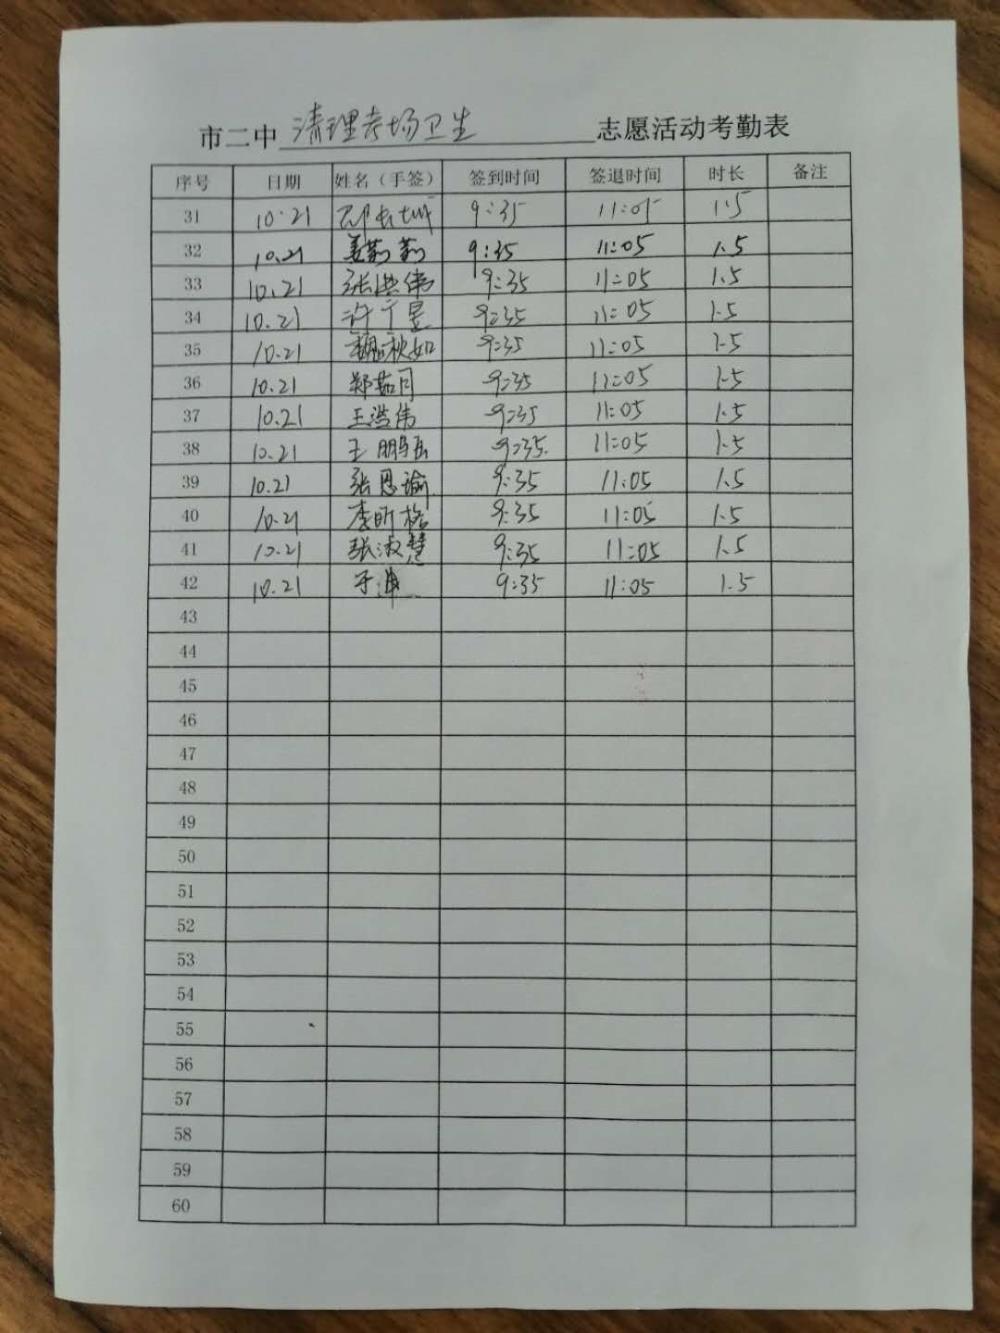 市二中 清理考场卫生 志愿活动考勤表
序号 日期 姓名（手签） 签到时间 签退时间 时长 备注
31 10.21 9:35 11:05 1.5
32 10.21 姜莉莉 9:35 11:05 1.5
33 10.21 张洪伟 9:35 11:05 1.5
34 10.21 许宁昱 9:35 11:05 1.5
35 10.21 魏秋如 9:35 11:05 1.5
36 10.21 郑茹月 9:35 11:05 1.5
37 10.21 王浩伟 9:35 11:05 1.5
38 10.21 王鹏岳 9:35 11:05 1.5
39 10.21 张恩瑜 9:35 11:05 1.5
40 10.21 李昕格 9:35 11:05 1.5
41 10.21 张淑慧 9:35 11:05 1.5
42 10.21 于 9:35 11:05 1.5
43
44
45
46
47
48
49
50
51
52
53
54
55
56
57
58
59
60